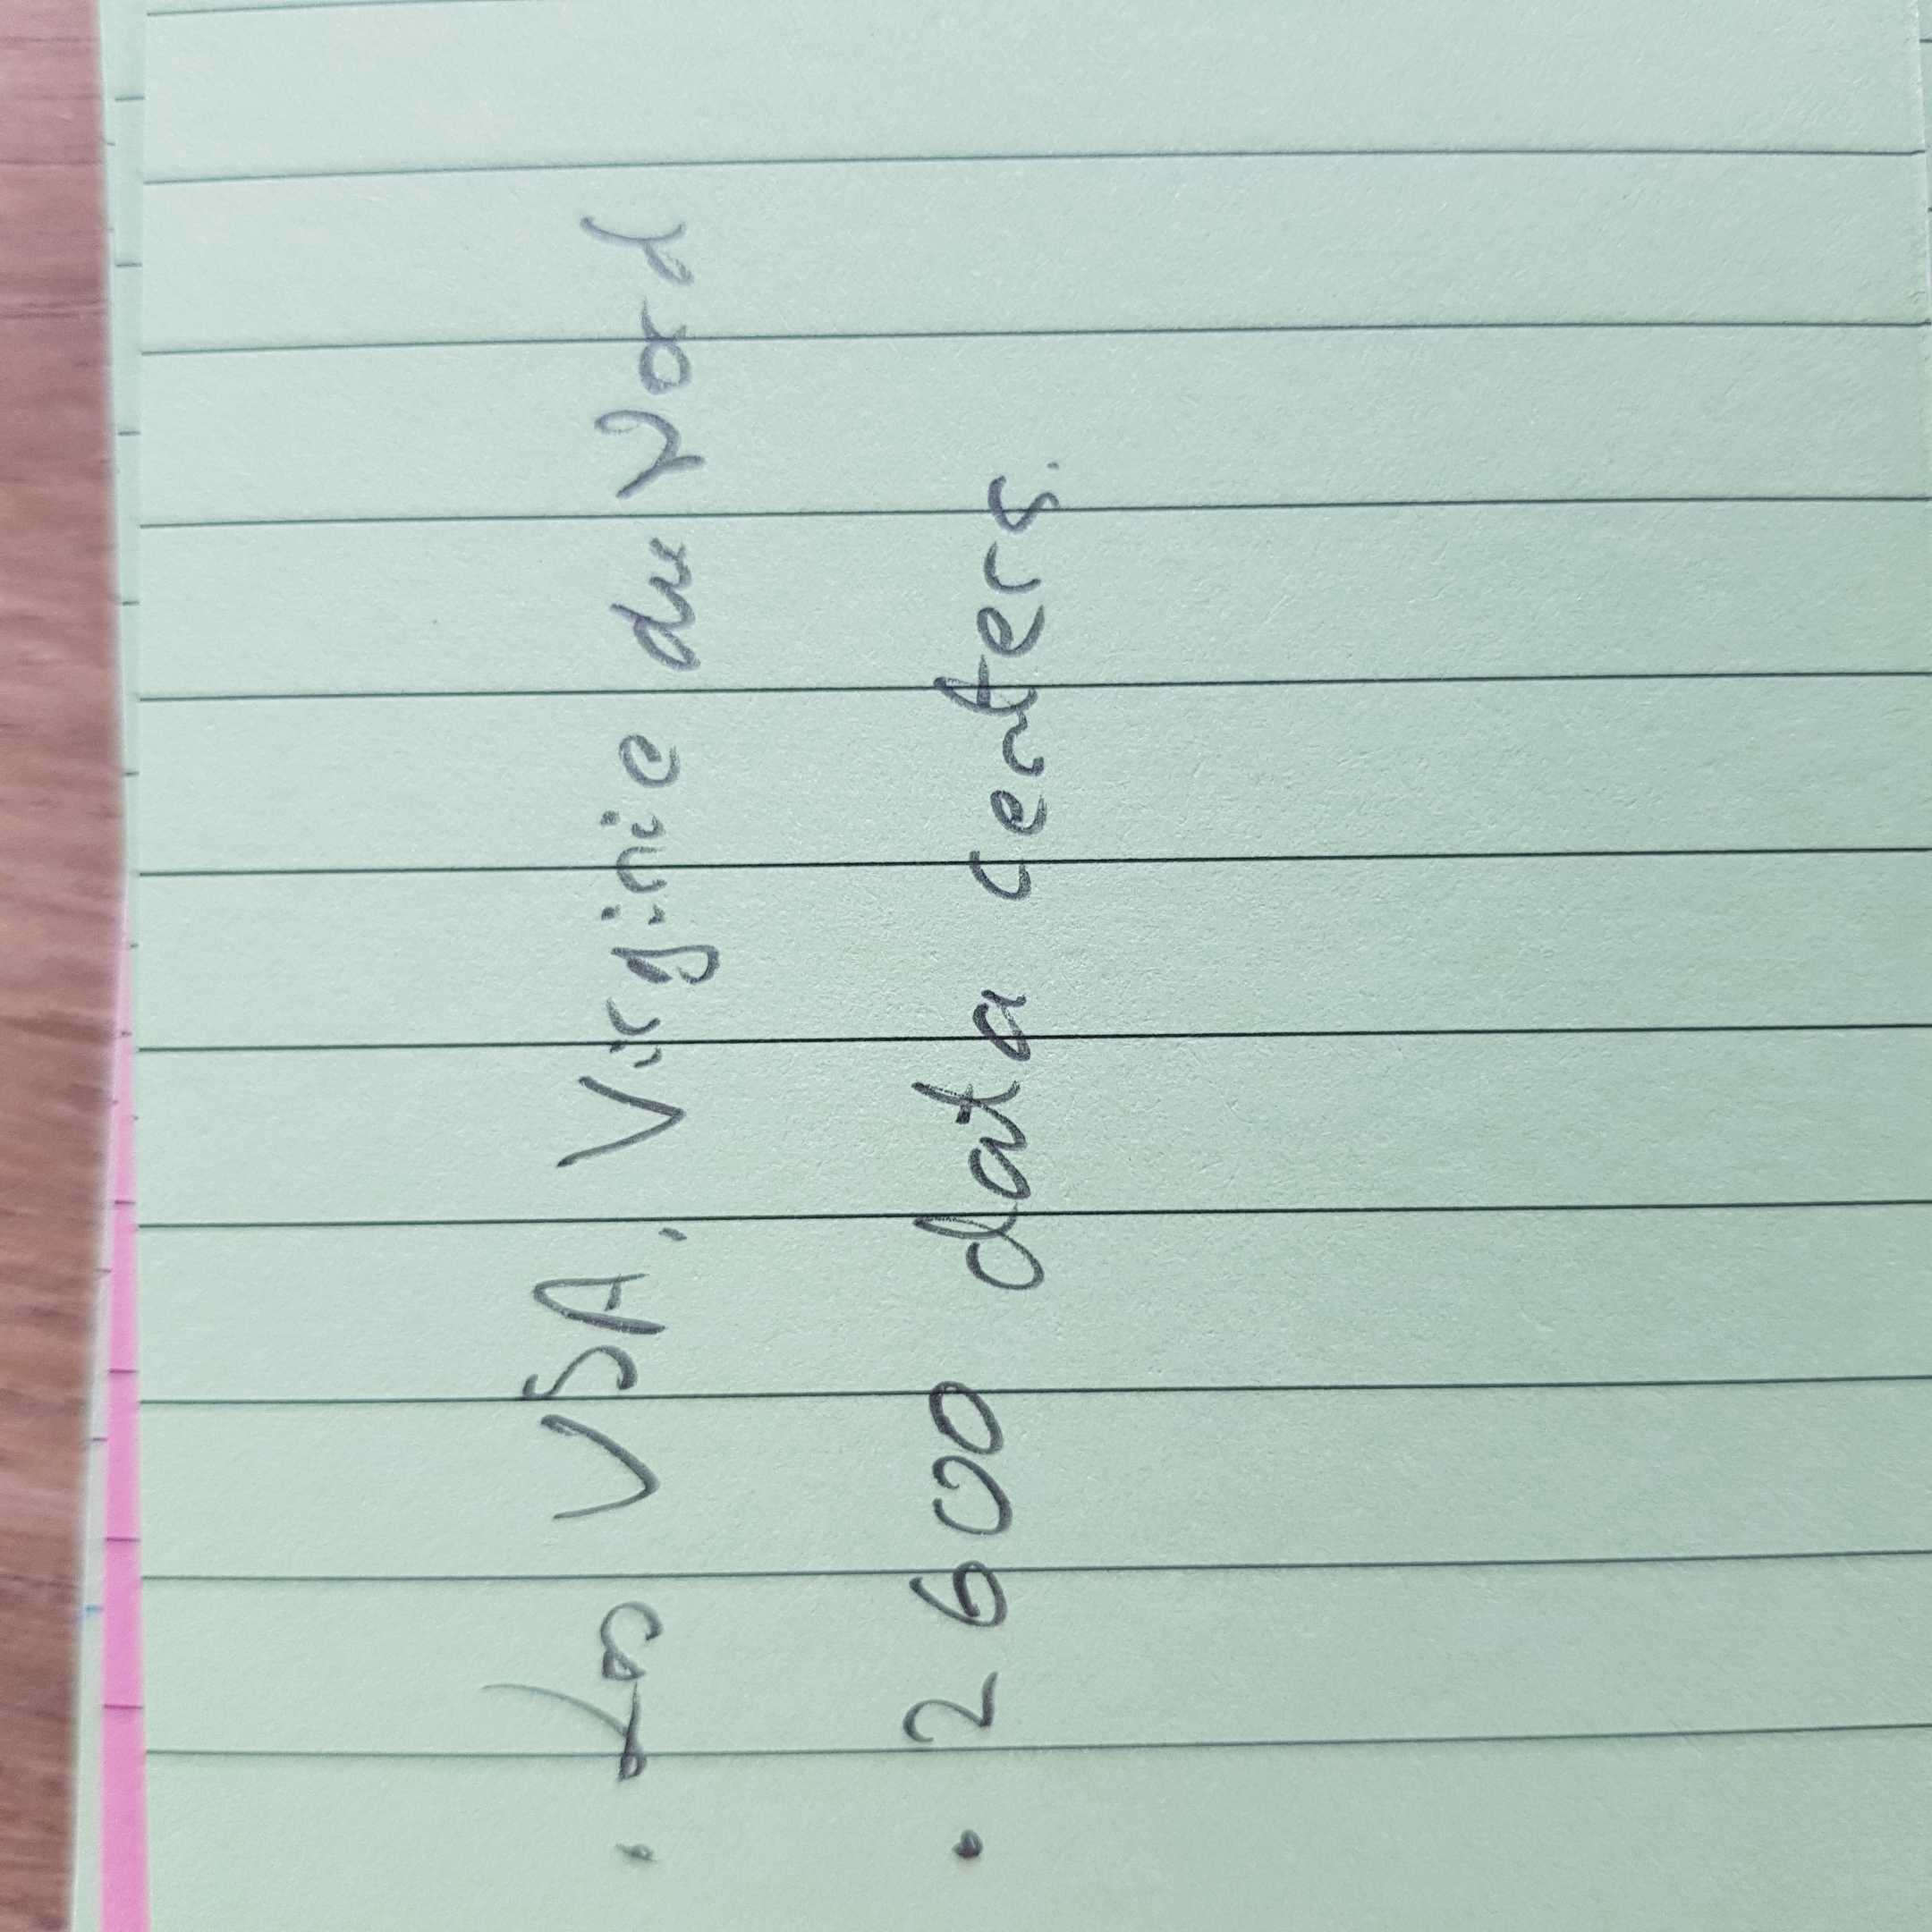 • Les USA, Virginie du Nord
• 2600 data centers.